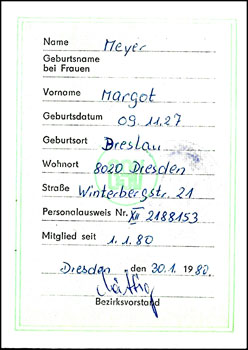 Name Meyer
Geburtsname
bei Frauen
Vorname Margot
Geburtsdatum 09.11.27
Geburtsort Breslau
Wohnort 8020 Dresden
Straße Winterbergstr. 21
Personalausweis Nr. XII 2188153
Mitglied seit 1.1.80
Dresden, den 30.1. 1980.
Bezirksvorstand